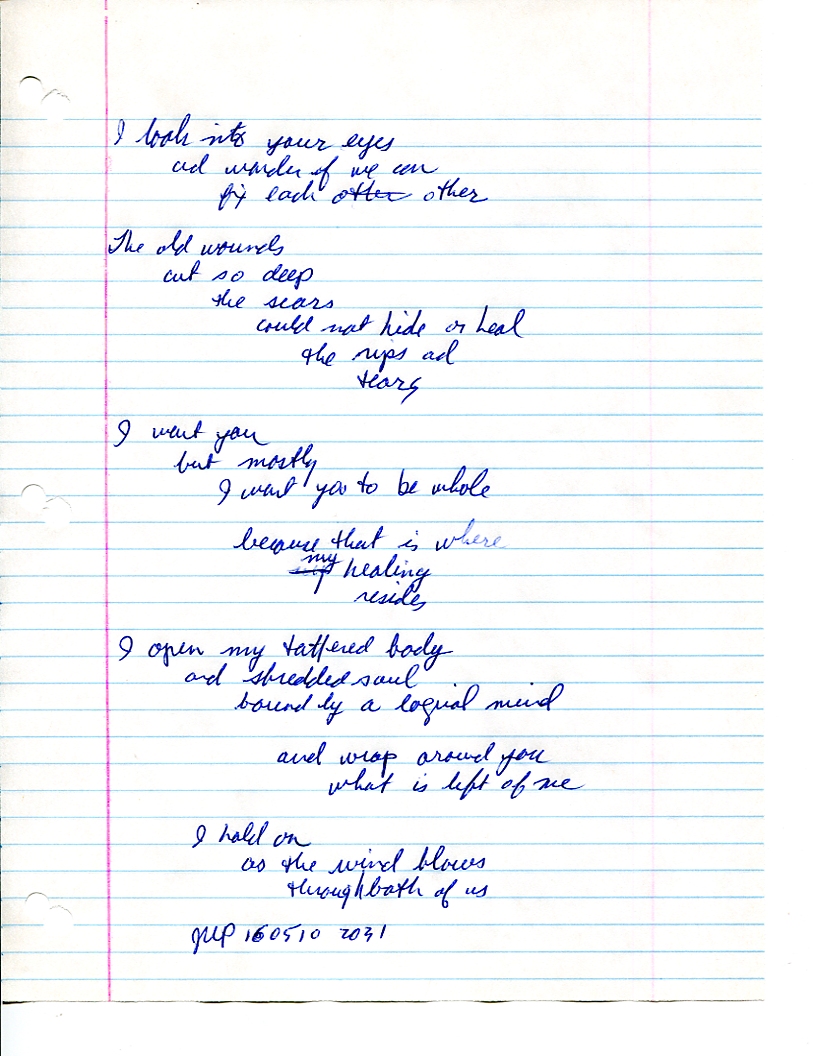 I look into your eyes
and wonder if we can
fix each other other
The old wounds
cut so deep
the scars
could not hide or heal
the rips and
tears
I want you
but mostly
I want you to be whole
because that is where
my healing
resides
I open my tattered body
and shredded soul
bound by a logical mind
and wrap around you
what is left of me
I hold on
as the wind blows
through both of us
160510 2031